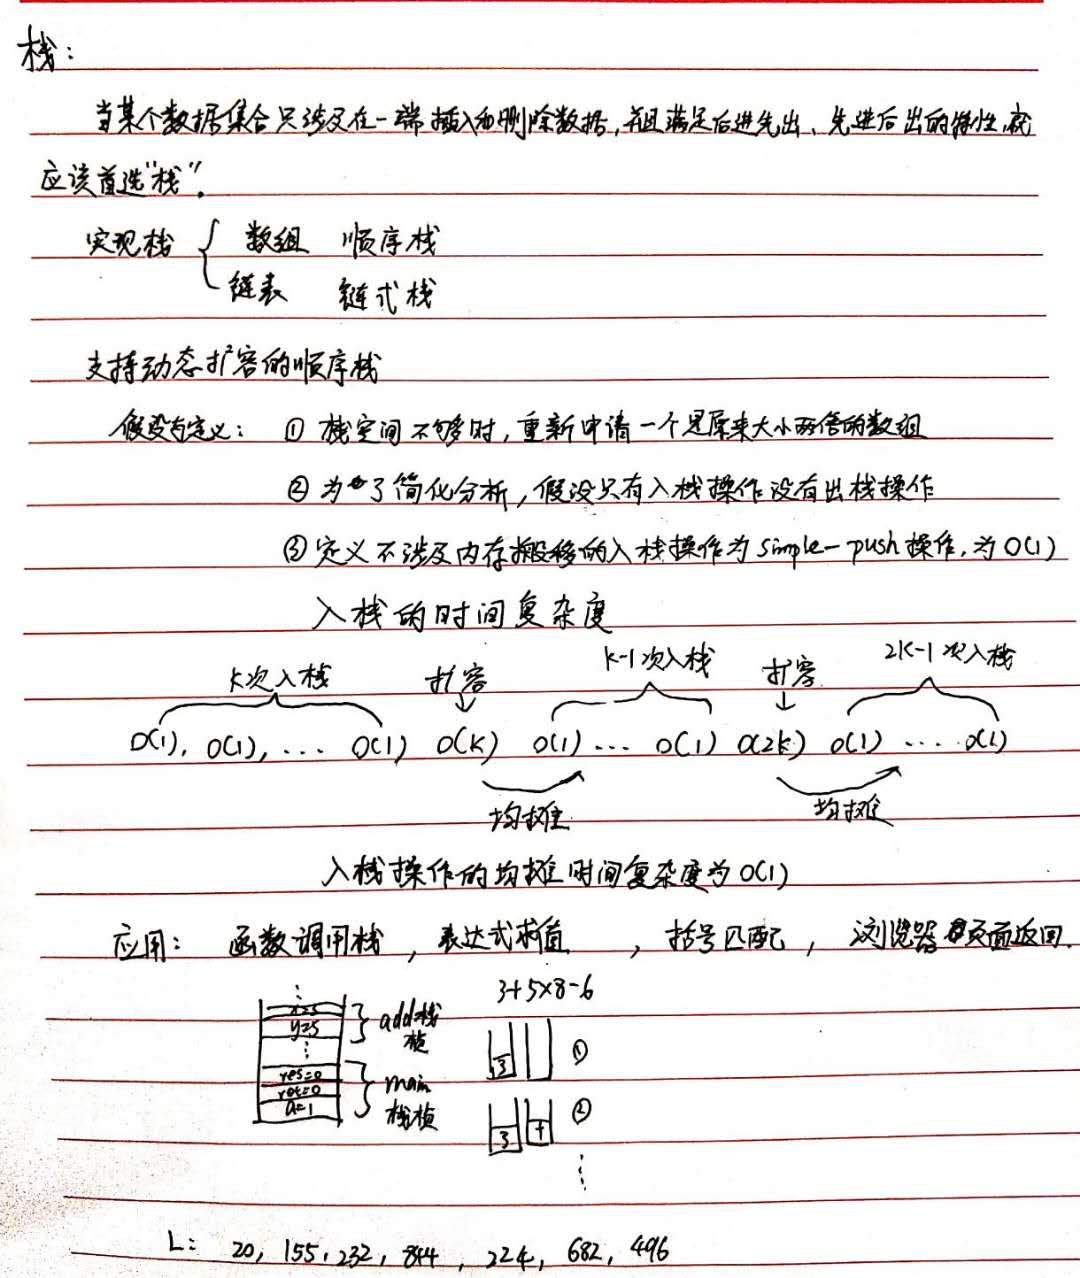 栈：
当某个数据集合只涉及在一端插入和删除数据，并且满足后进先出、先进后出的特性，就
应该首选“栈”。
实现栈 { 数组 顺序栈
链表 链式栈
支持动态扩容的顺序栈
假设与定义： ① 栈空间不够时，重新申请一个是原来大小两倍的数组
② 为了简化分析，假设只有入栈操作没有出栈操作
③ 定义不涉及内存搬移的入栈操作为 simple-push 操作，为 O(1)
入栈的时间复杂度
K次入栈 扩容 K-1次入栈 扩容 2K-1次入栈
O(1), O(1), ... O(1) O(K) O(1) ... O(1) O(2K) O(1) ... O(1)
均摊 均摊
入栈操作的均摊时间复杂度为 O(1)
应用： 函数调用栈 ，表达式求值 ，括号匹配 ，浏览器页面返回.
3+5×8-6
x=3
y=5
add栈
桢
res=0
ret=0
a=1
main
栈桢
3 ①
3 + ②
L: 20, 155, 232, 844, 224, 682, 496